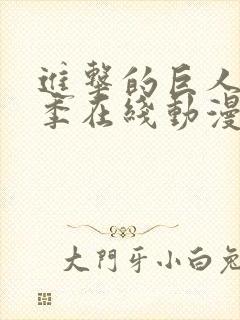 進擊的巨人
季在綫動漫
大門牙小白兔